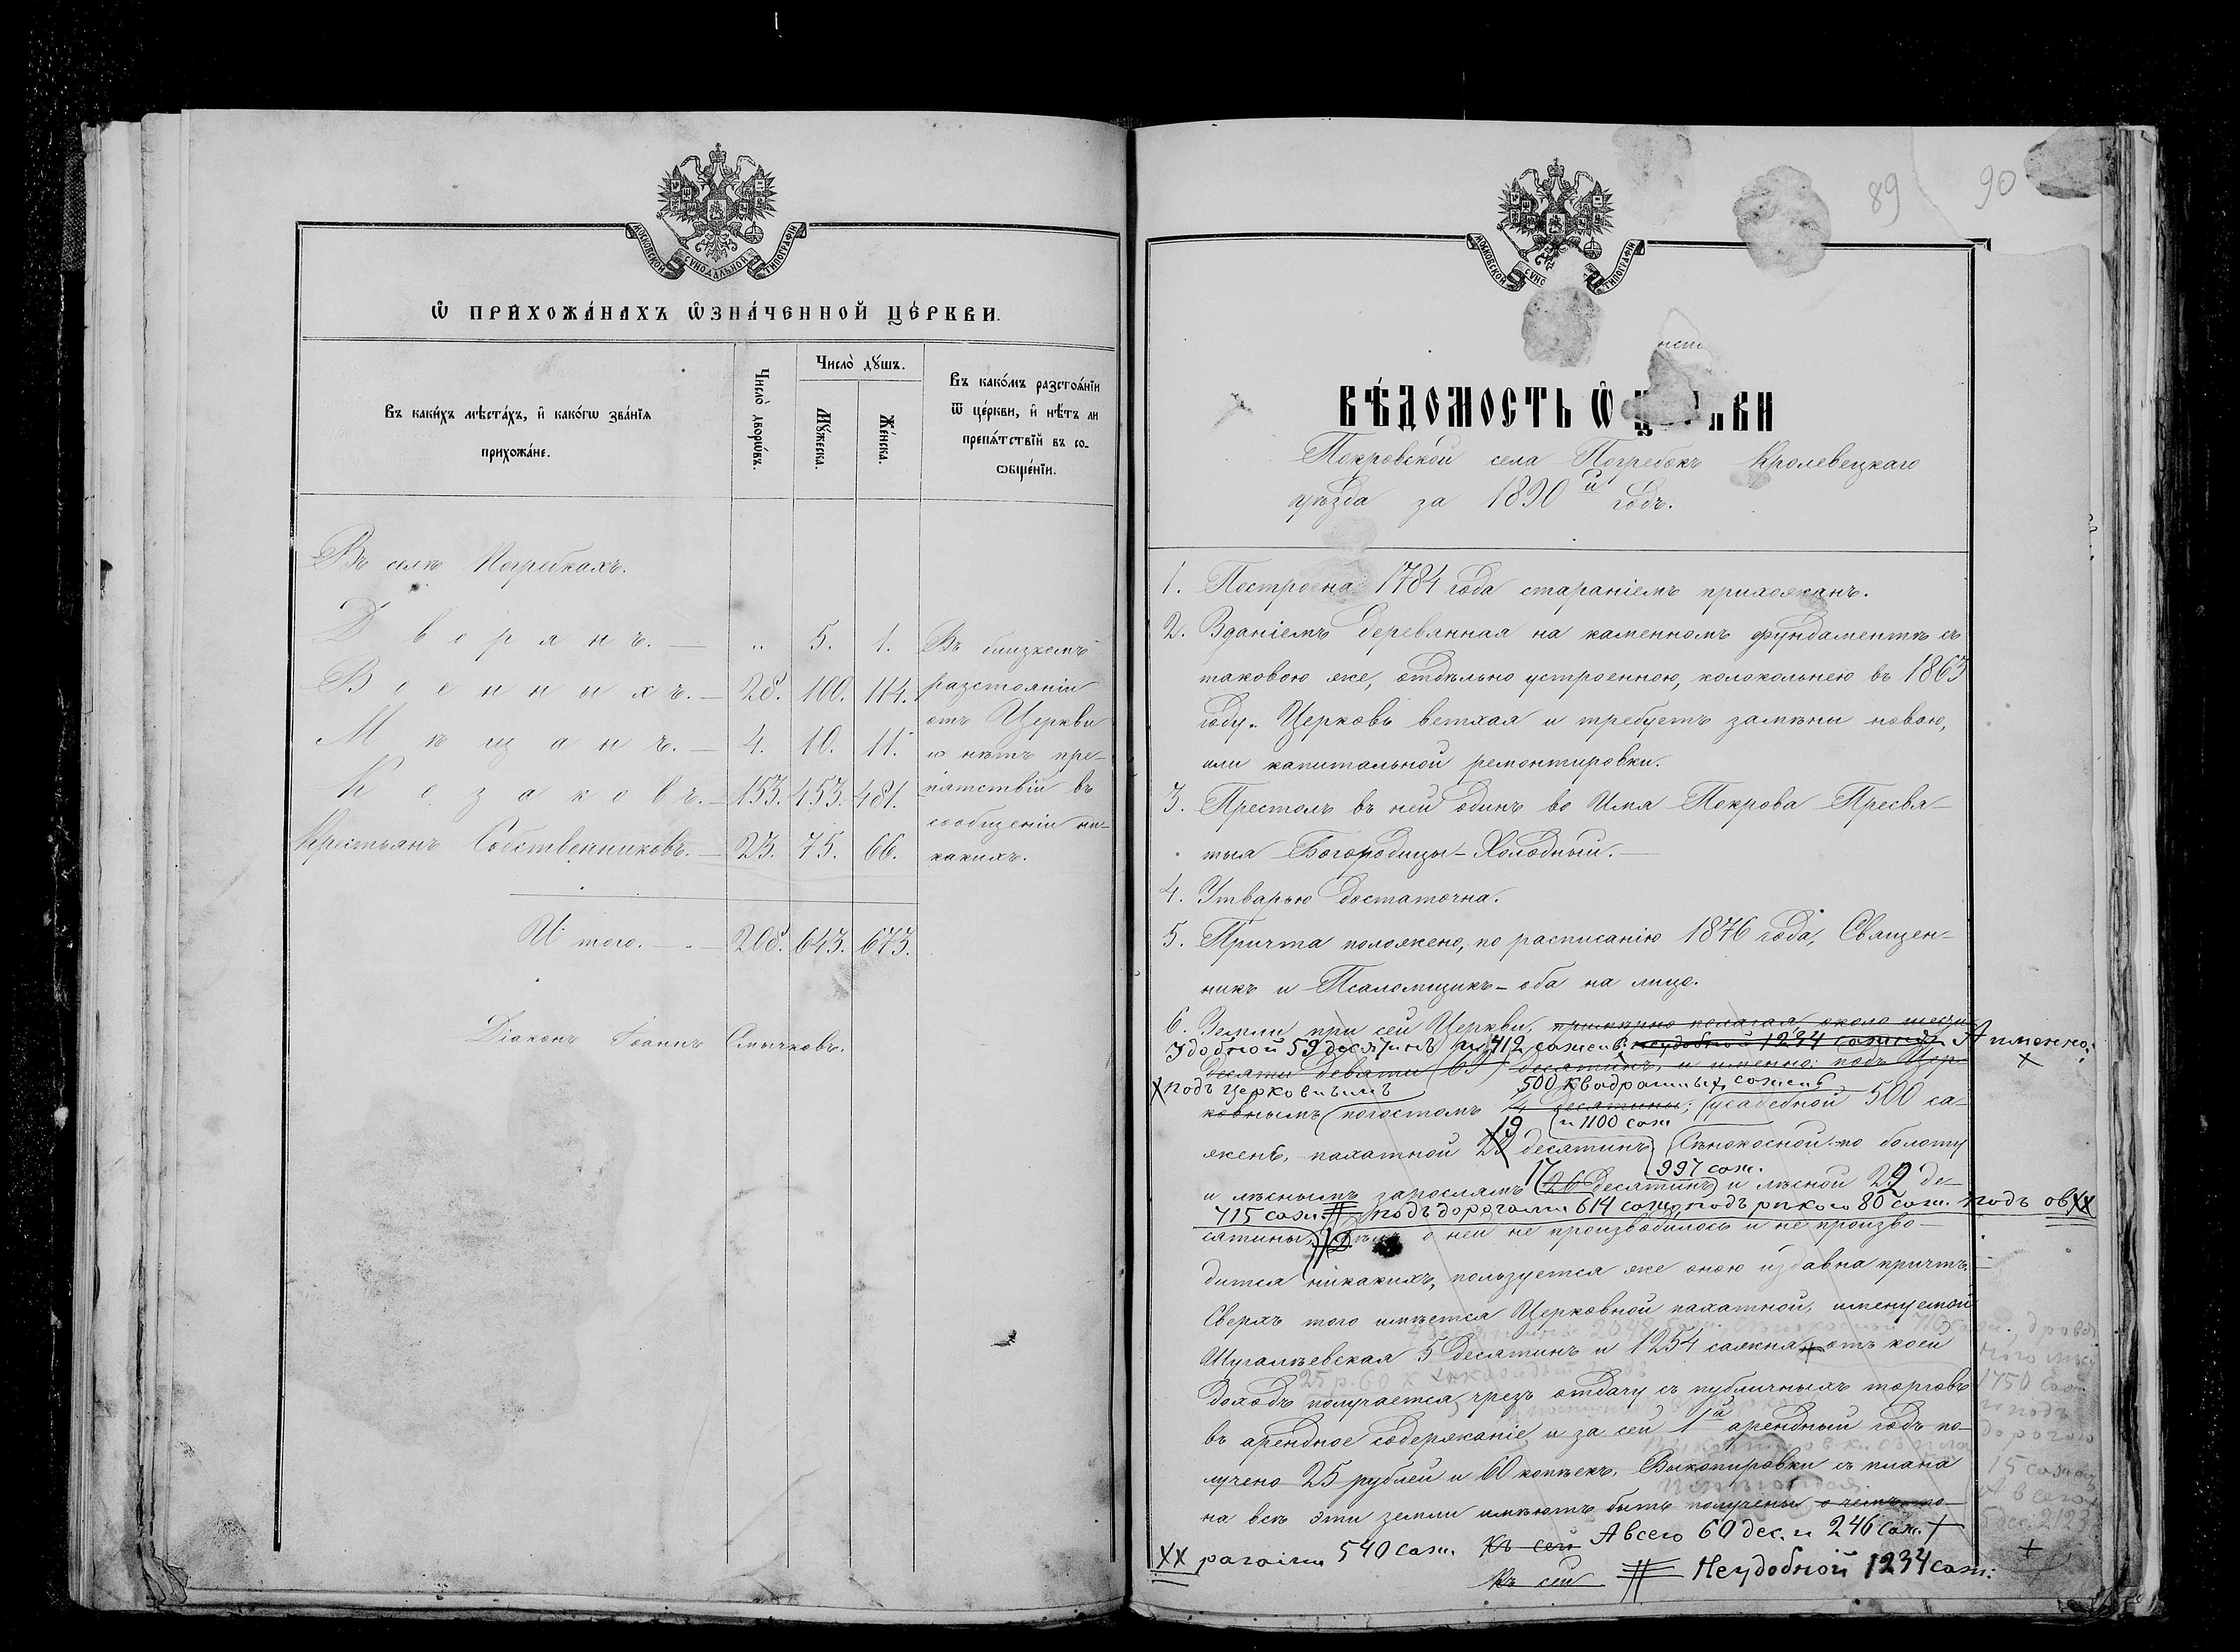 МОСКОВСКОЙ СѴНОДАЛЬНОЙ ТИПОГРАФІИ
Ѡ ПРИХОЖА́НАХЪ ѠЗНА́ЧЕННОЙ ЦЕ́РКВИ.
Въ каки́хъ мѣста́хъ, и҆ како́гѡ зва́нїѧ прихожа́не.
Число̀ дворѡ́въ.
Число̀ дꙋшъ.
Мꙋ́жеска.
Же́нска.
Въ како́мъ разстоѧ́нїи
ѿ це́ркви, и҆ нѣ́тъ ли
препѧ́тствїй въ со-
ѻбще́нїи.
Въ селѣ Погребкахъ.
Дворянъ. — „ 5. 1. Въ близкомъ
Военныхъ. — 28. 100. 114. разстояніи
отъ Церкви
Мѣщанъ. — 4. 10. 11. и нѣтъ пре-
Козаковъ. — 153. 453. 481. пятствій въ
сообщеніи ни-
Крестьянъ Собственниковъ. — 23. 75. 66. какихъ.
Итого. — 208. 643. 673.
Діаконъ Іоаннъ Смычковъ.
89 90
МОСКОВСКОЙ СѴНО ТИПОГРАФІИ
ВѢ́ДОМОСТЬ Ѡ Ц КВИ
Покровской села Погребокъ Кролевецкаго
уѣзда за 1890й годъ.
1. Построена 1784 года стараніемъ прихожанъ.
2. Зданіемъ деревянная на каменномъ фундаментѣ съ
таковою же, отдѣльно устроенною, колокольнею въ 1863
году. Церковь ветхая и требуетъ замѣны новою,
или капитальной ремонтировки.
3. Престолъ въ ней одинъ во Имя Покрова Пресвя-
тыя Богородицы – Холодный. —
4. Утварью достаточна.
5. Причта положено, по расписанію 1876 года, Священ-
никъ и Псаломщикъ – оба на лицо.
6. Земли при сей Церкви, примѣрно полагая около шести
Удобной 59 десятинъ и 1412 сажень: неудобной 1234 сажень А именно:
десяти девяти (69) десятинъ, и именно: подъ Цер-
X подъ Церковнымъ 500 квадратныхъ сажень
ковнымъ погостомъ десятины; усадебной 500 са-
19 и 1100 саж
жень, пахатной десятинъ, Сѣнокосной по болоту
17 997 саж.
и лѣснымъ зарослямъ 26 десятинъ и лѣсной 2 де-
715 саж. подъ дорогами 614 саж. подъ рѣкою 80 саж. подъ ов XX
сятины, о ней не производилось и не произво-
дится никакихъ, пользуется же оною издавна причтъ.
Сверхъ того имѣется Церковной пахатной, именуемой
Шугалѣевская 5 десятинъ и 1254 сажня отъ коей
доходъ получается чрезъ отдачу съ публичныхъ торговъ
въ арендное содержаніе и за сей 1й арендный годъ по-
лучено 25 рублей и 60 копѣекъ. Выкопировки съ плана
на всѣ эти земли имѣютъ быть получены, о чемъ по-
XX рагами 540 саж. Къ сей А всего 60 дес. и 246 саж. +
Къ сей Неудобной 1234 саж: